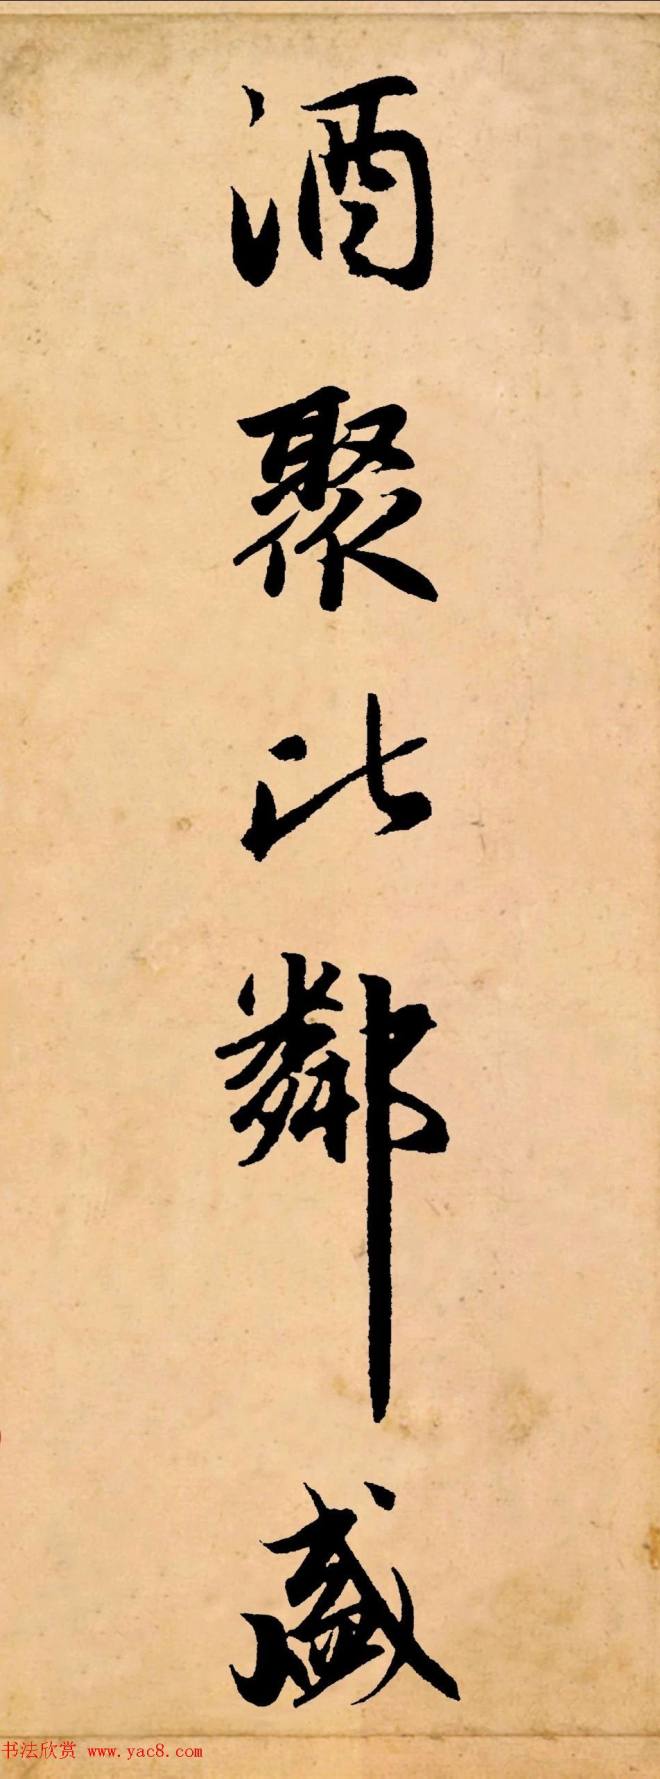 酒聚比鄰盛
书法欣赏 www.yac8.com